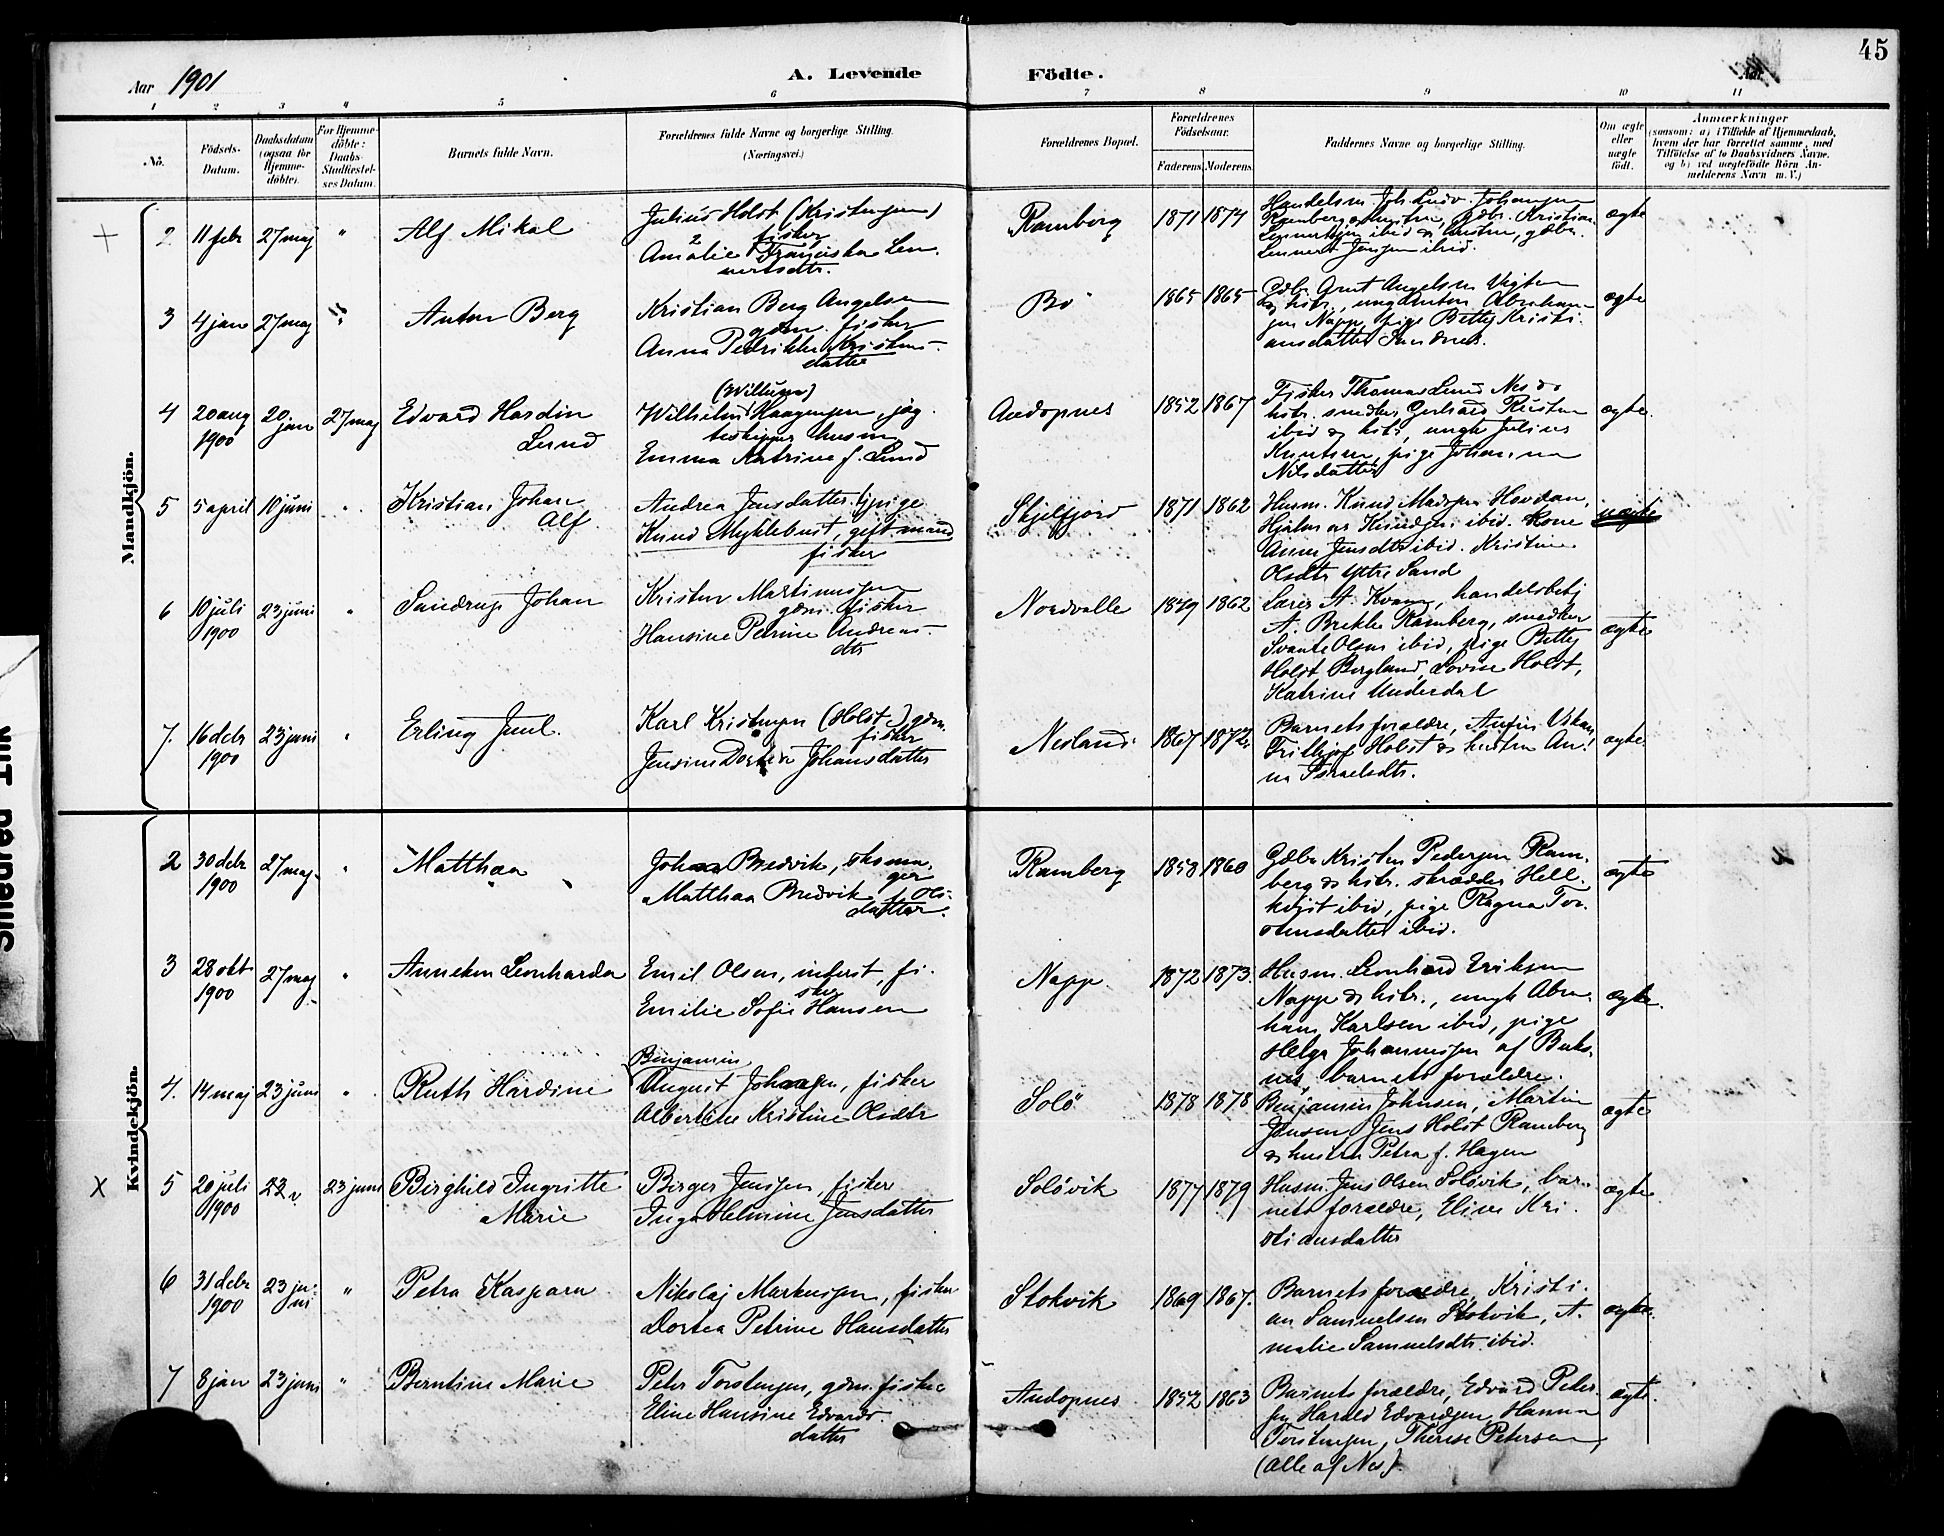 Aar 1901
A. Levende Födte.
45
1 2 3 4 5 6 7 8 9 10 11
No.
Födsels-
Datum.
Daabsdatum
(ogsaa for
Hjemme-
döbte).
For Hjemme-
döbte:
Daabs-
Stadfæstel-
ses Datum.
Barnets fulde Navn.
Forældrenes fulde Navne og borgerlige Stilling.
(Næringsvei.)
Forældrenes Bopæl.
Forældrenes
Födselsaar.
Faderens Moderens
Faddernes Navne og borgerlige Stilling.
Om ægte
eller
uægte
födt.
Anmærkninger
(saasom: a) i Tilfælde af Hjemmedaab,
hvem der har forrettet samme, med
Tilföielse af to Daabsvidners Navne,
og b) ved uægtefödte Börn An-
melderens Navn m. V.)
Mandkjön.
2 11 febr 27 maj " Alf Mikal
Julius Holst (Kristensen)
fisker
Amalie Franciska Len-
nertsdtr.
Ramberg 1871 1874
Handelsm. Joh. Ludv. Johansen
Ramberg & hustru, gdbr. Kristian
Lennertsen ibid & hustru, gdbr.
Lennert Jensen ibid.
ægte
3 4 jan 27 maj " Anton Berg
Kristian Berg Angelsen
gdm. fisker
Anna Pedrikke Kristens-
datter
Bö 1865 1865
Gdbr. Arnt Angelsen Vigten
& hstr., ungk Anton Abraham-
sen Napp, pige Betty Kristi-
ansdatter Sandnes.
ægte
4 20 aug 1900 20 jan 27 maj Edvard Hardin
Lund
Wilhelm Haagensen, jæg-
teskipper husm
Emma Katrine f. Lund
Andopnes 1852 1867
Fisker Thomas Lund Nes &
hstr. snedker Gerhard Risten
ibid & hstr, ungk Julius
Knutsen, pige Johanna
Nilsdatter
ægte.
5 5 april 10 juni " Kristian Johan
Alf
Andrea Jensdatter, pige
Knud Myklebust, gift mand
fisker
Skjelfjord 1871 1862
Husm. Knud Madsen Hovdan,
Hjalmar Knudsen ibid. kone
Anna Jensdtr ibid. Kristine
Olsdtr Yttre Sand
uægte
6 10 juli 1900 23 juni " Sandrup Johan
Kristen Martinussen
gdm. fisker
Hansine Petrine Andreas-
dtr
Nordvalle 1849 1862
Lærer A. Kvam, handelsbetj
A. Brekke Ramberg, snedker
Svante Olsen ibid, pige Betty
Holst Bergland, Lovise Holst,
Katrine Underdal
ægte
7. 16 debr 1900 23 juni " Erling Juul.
Karl Kristensen (Holst) gdm.
fisker
Jensine Dortea Johansdatter
Nesland. 1867 1872.
Barnets forældre, Anfin Vikan,
Fridtjof Holst & hustru An-
na Israelsdtr.
ægte.
Kvindekjön.
2 30 debr 1900 27 maj. " Matthea
Johan Bredvik, skoma-
ger
Matthea Bredvik f. Ols-
datter.
Ramberg 1853 1860
Gdbr Kristen Pedersen Ram-
berg & hstr. skrædder Hell-
kvist ibid, pige Ragna Tor-
stensdatter ibid.
ægte
3 28 okt 1900 27 maj " Anneken Leonharda
Emil Olsen, inderst, fi-
sker
Emilie Sofie Hansen
Napp. 1872 1873.
Husm. Leonhard Eriksen
Napp & hstr., ungk Abra-
ham Karlsen ibid, pige
Helga Johannessen af Buks-
nes, barnets forældre.
ægte.
4. 14 maj 23 juni " Ruth Hardine
Benjamin
August Johnsen, fisker
Albertine Kristine Olsdtr
Solö 1878 1878
Benjamin Johnsen, Martin
Jensen, Jens Holst Ramberg
& hustru Petra f. Hagen
ægte
X 5 20 juli 1900 23 juni Birghild Ingritte
Marie
Birger Jensen, fisker
Inga Helmine Jensdatter
Solövik 1877 1879
Husm. Jens Olsen Solövik, bar-
nets forældre, Elise Kri-
stiansdatter
ægte
6 31 debr 1900 23 ju-
ni " Petra Kaspara
Nikolaj Markussen, fisker
Dortea Petrine Hansdatter
Stokvik 1869 1867.
Barnets forældre, Kristi-
an Samuelsen Stokvik, A-
malie Samuelsdtr ibid.
ægte.
7 8 jan 23 juni " Berntine Marie
Peter Torstensen, gdm. fisker
Eline Hansine Edvards-
datter
Andopnes 1852 1863
Barnets forældre, Edvard Peter-
sen Harald Edvardsen, Hanna
Torstensen, Therese Petersen,
(alle af Nes).
ægte.